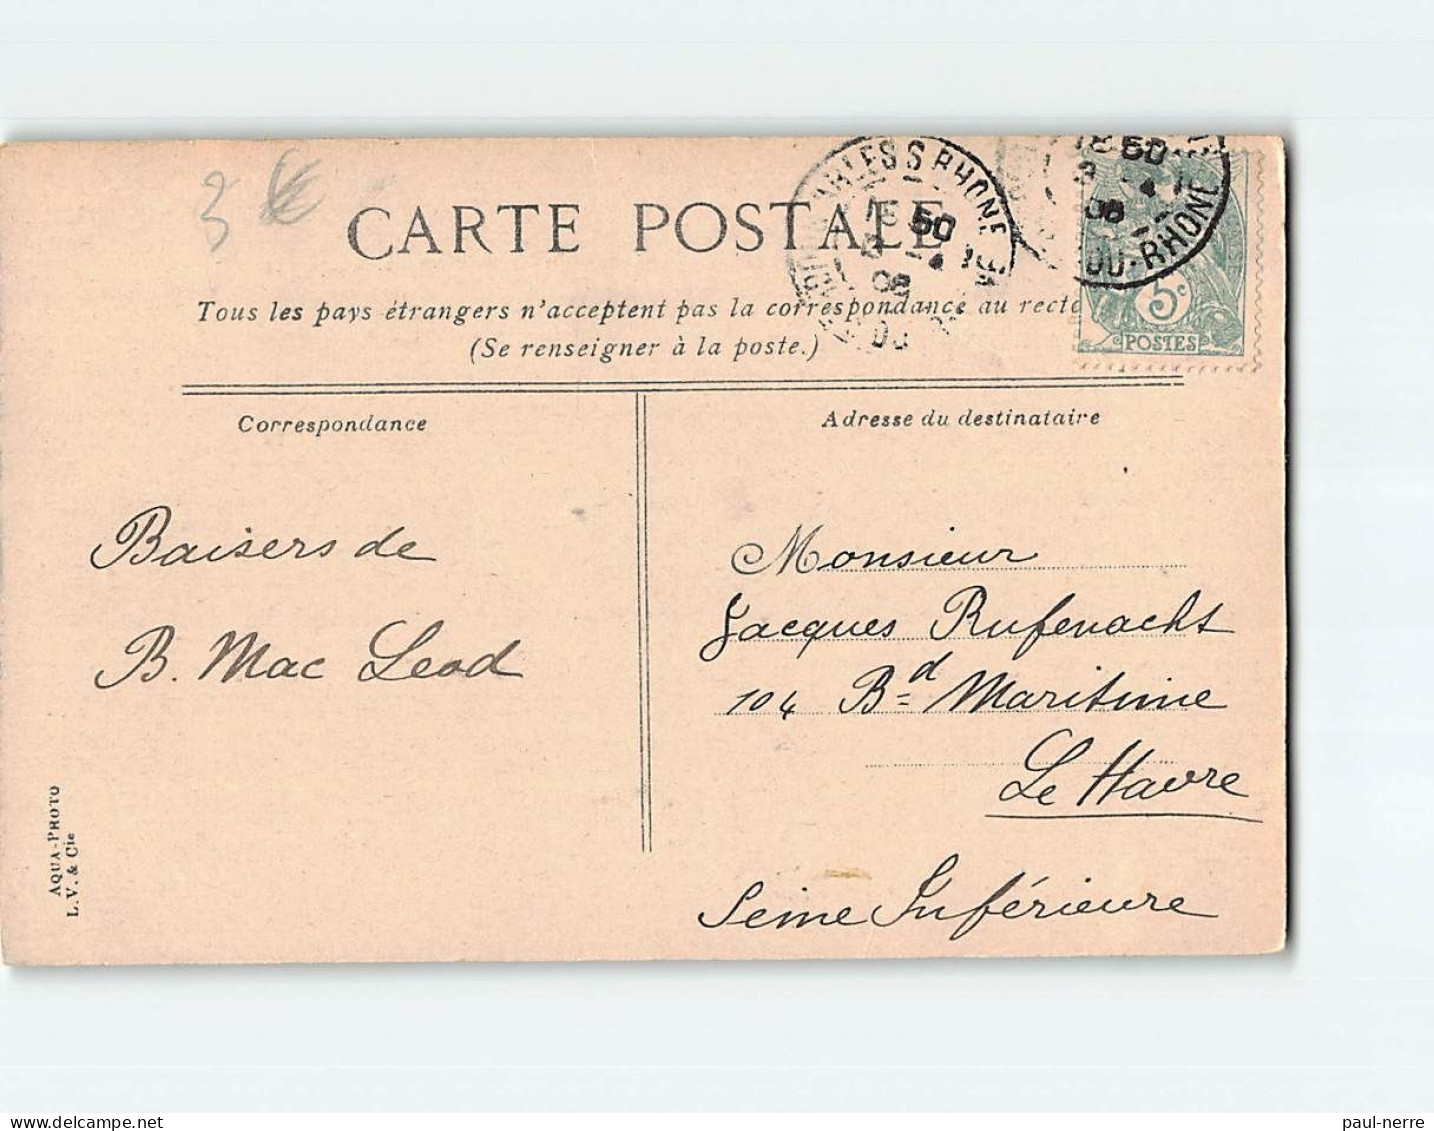 3 €
CARTE POSTALE
Tous les pays étrangers n'acceptent pas la correspondance au recto
(Se renseigner à la poste.)
ARLES S RHONE
50
08
50
08
DU-RHONE
5c
POSTES
Correspondance
Adresse du destinataire
Baisers de
B. Mac Leod
Monsieur
Jacques Rufenacht
104 Bd Maritime
Le Havre
Seine Inférieure
AQUA-PHOTO
L. V. & Cie
paul-nerre